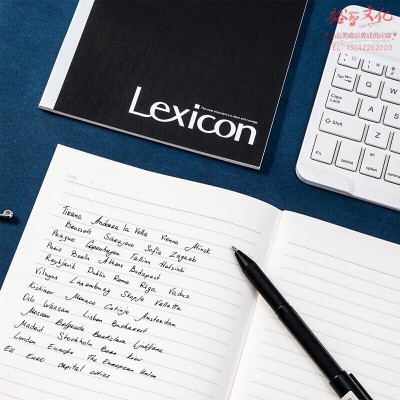 文化
TEL:
Lexicon
Caps Lock
A
Shift
Z
Fn
Q
W
Tirana Andorra la Vella Vienna Minsk
Brussels Sarajevo Sofia Zagreb
Prague Copenhagen Tallinn Helsinki
Paris Berlin Athens Budapest
Reykjavik Dublin Rome Riga Vaduz
Vilnyus Luxemburg Skopje Valletta
Kishinev Monaco Cetinje Amsterdam
Oslo Warsaw Lisbon Bucharest
Moscow Belgrade Bratislava Ljubljana
Madrid Stockholm Bern Kiev
London Europe The European Union
EU Euro capital